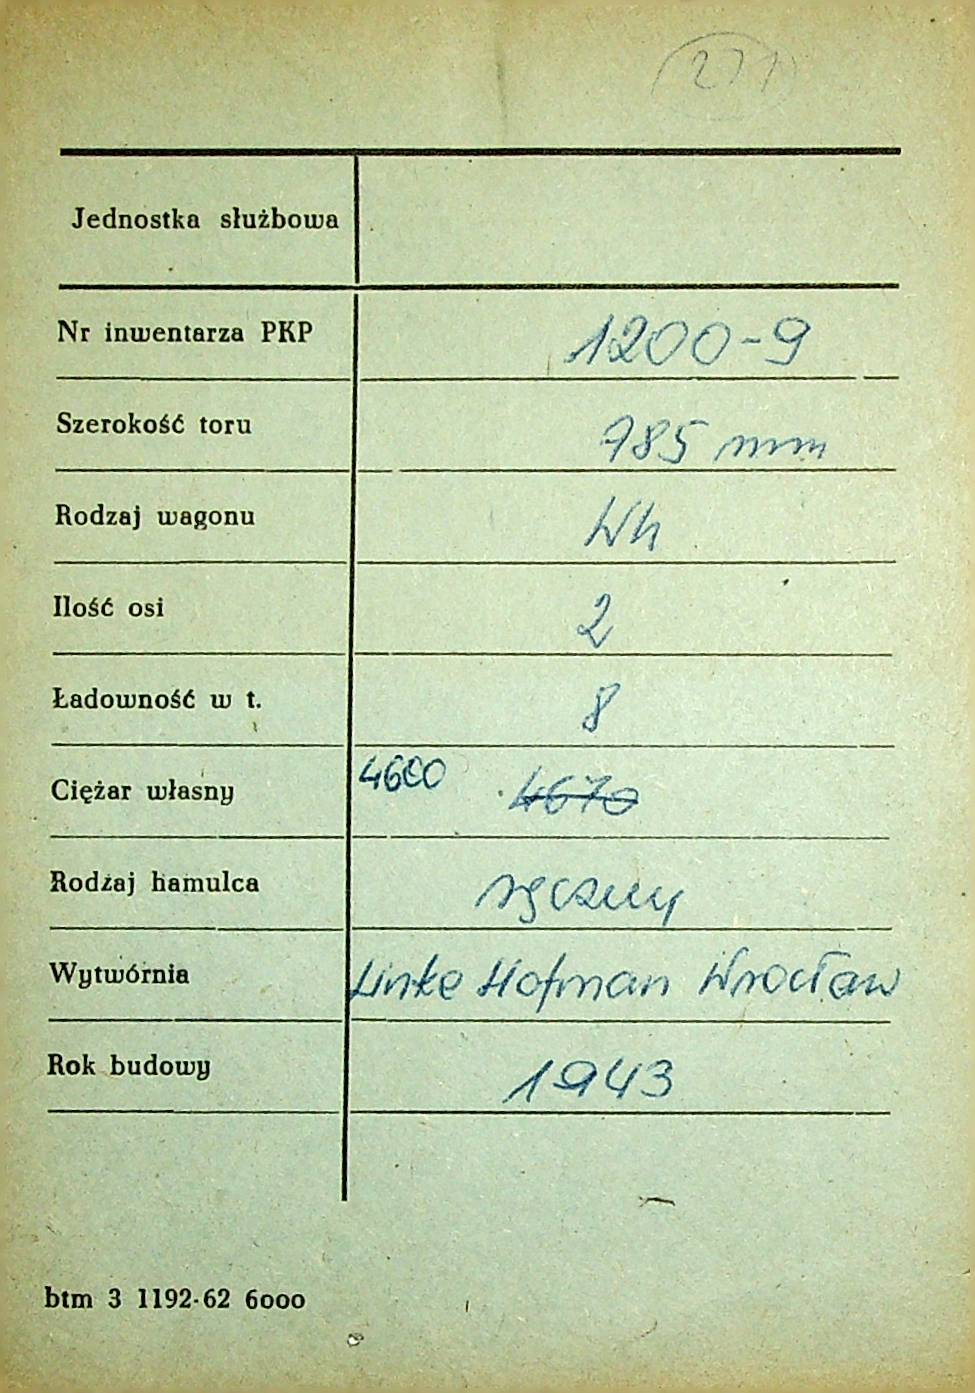 271
Jednostka służbowa
Nr inwentarza PKP 1200-9
Szerokość toru 785 mm
Rodzaj wagonu Wh
Ilość osi 2
Ładowność w t. 8
Ciężar własny 4600 4670
Rodzaj hamulca ręczny
Wytwórnia Linke Hofman Wrocław
Rok budowy 1943
btm 3 1192-62 6000